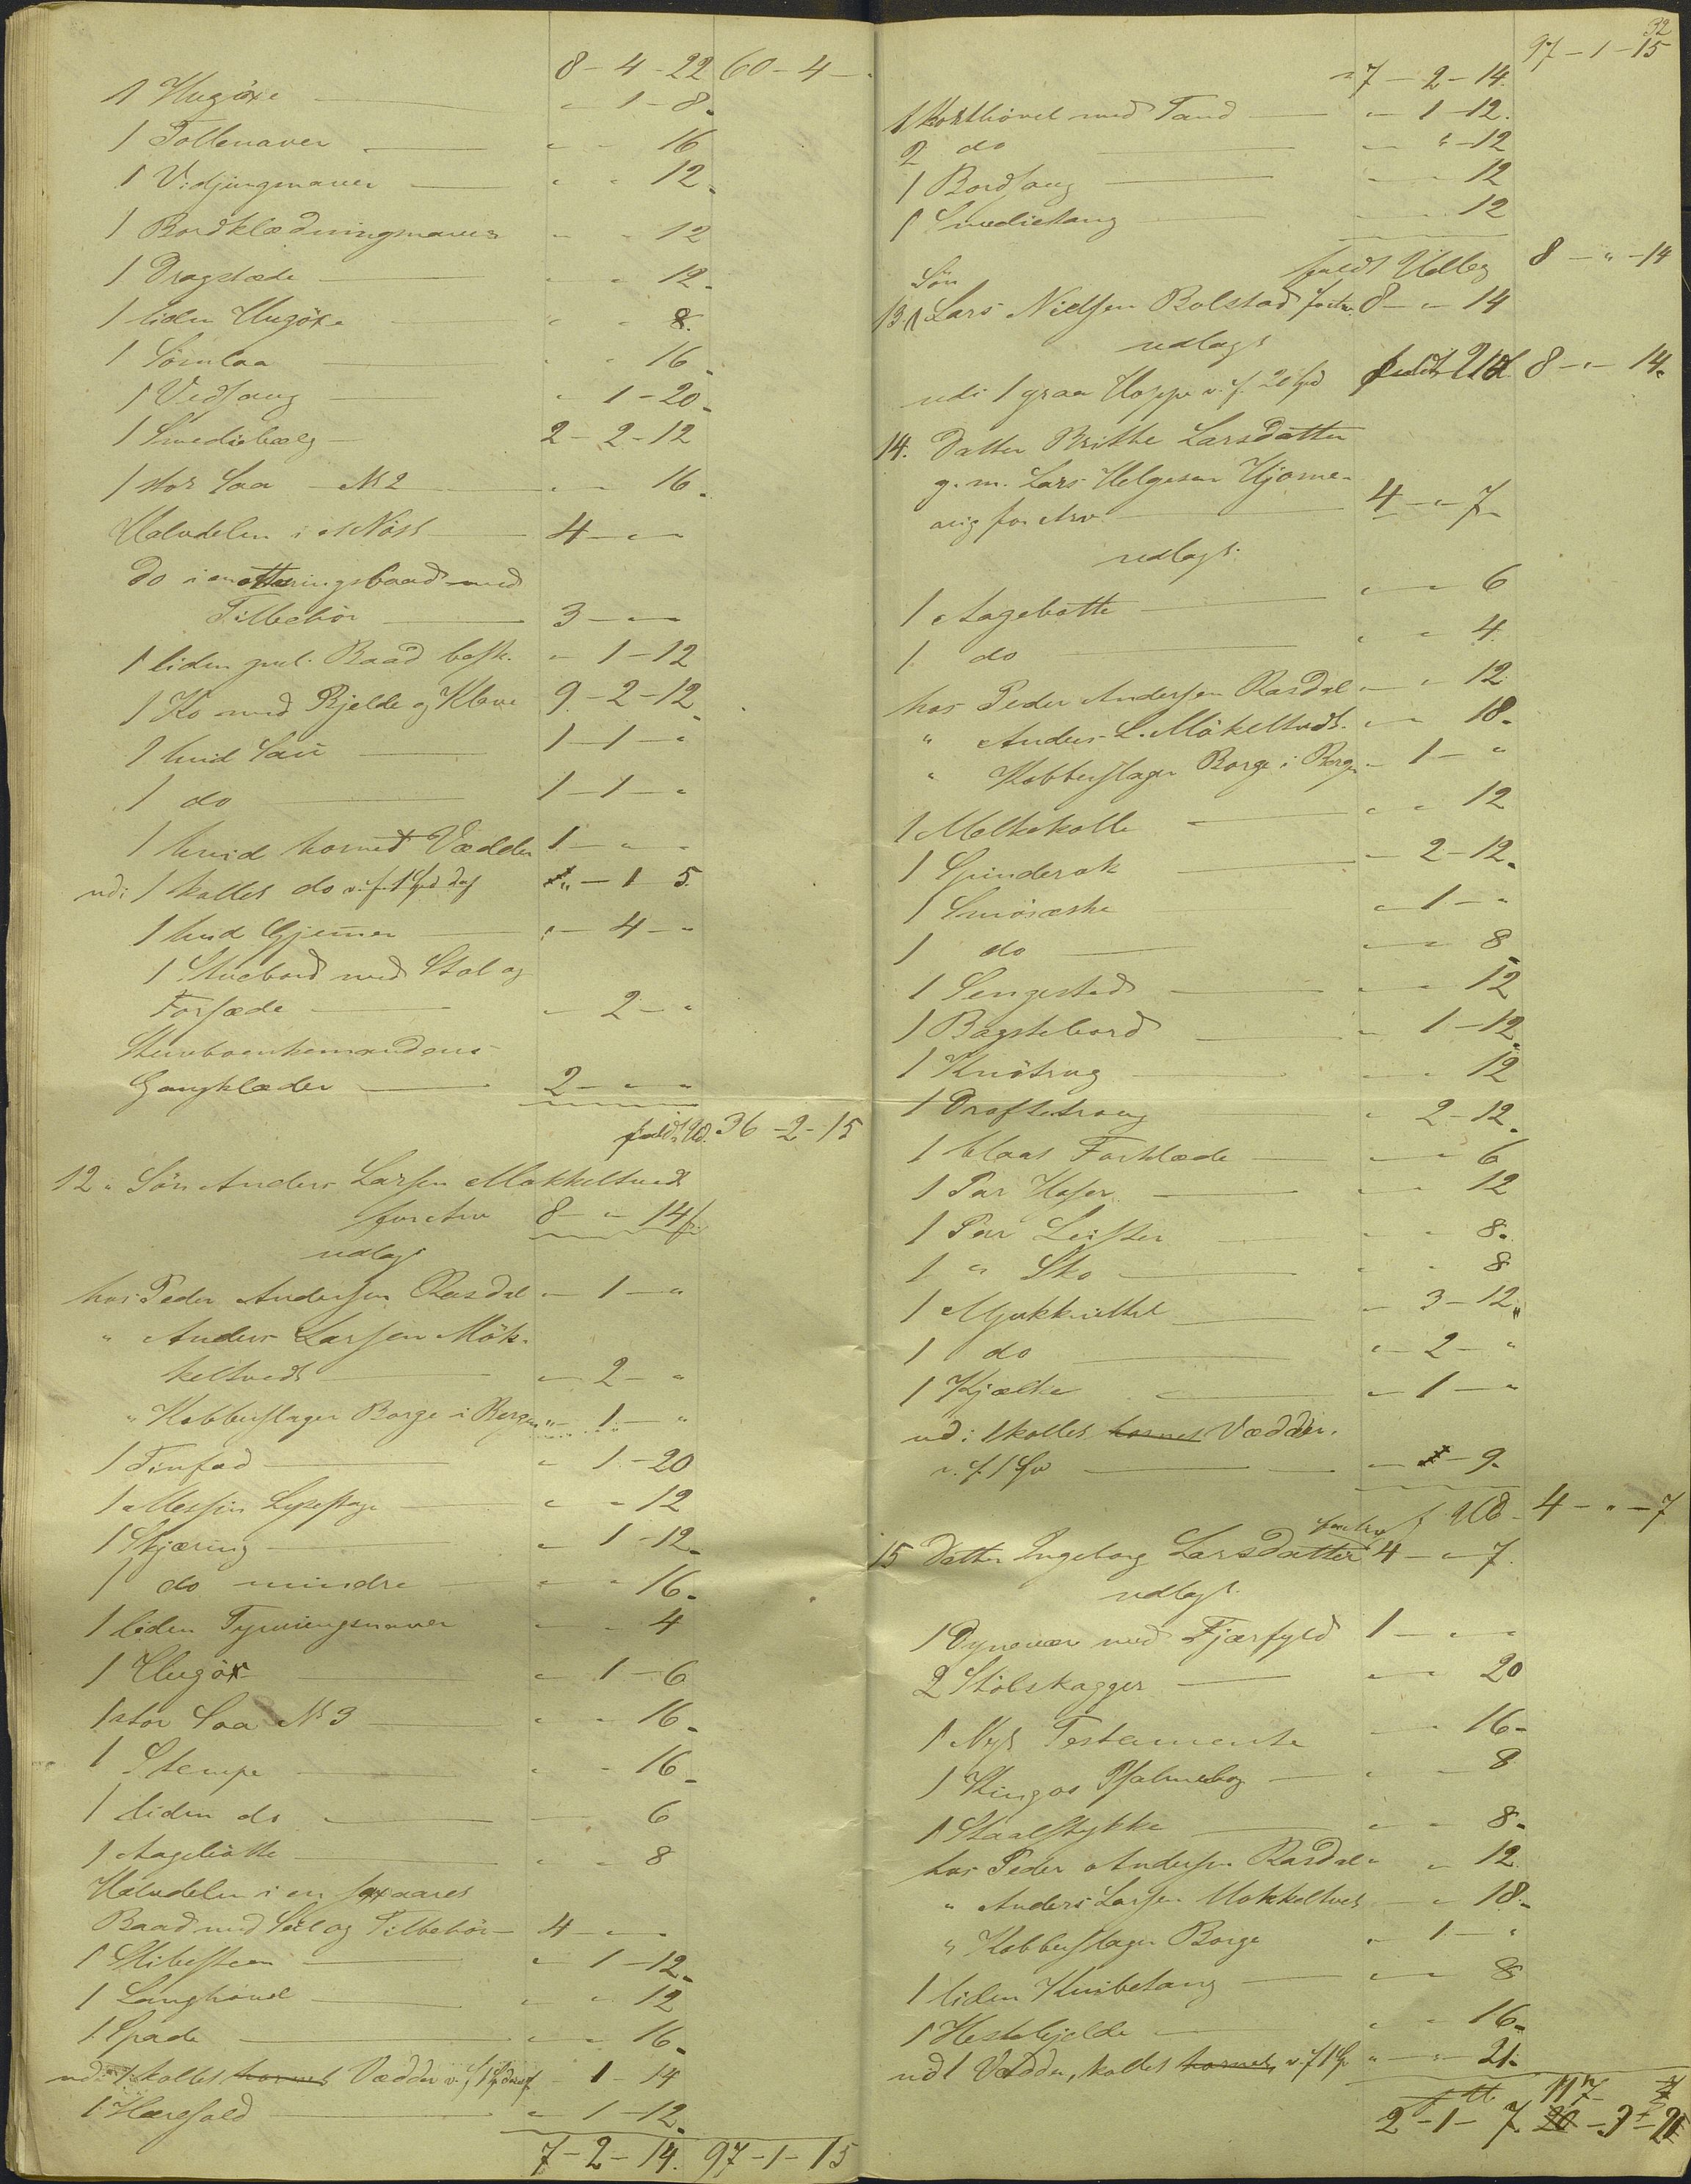 8 - 4 - 22 60 - 4 - "
1 Hugöxe " - 1 - 8
1 Tollenaver " " 16
1 Vidjingnaver " " 12
1 Bordklædningnaver " " 12
1 Dragstede " " 12
1 liden Hugöxe " " 8
1 Sömlaa " " 16
1 Vedsaug " 1 - 20
1 Smediebælg 2 - 2 - 12
1 stor Saa N 2 " " 16
Halvdelen i et Nöst 4 - " - "
do i en otteringsbaad med
Tilbehör 3 - " - "
1 liden gml. Baad besk. " - 1 - 12
1 Ko med Bjelde og Klave 9 - 2 - 12
1 hvid Sau 1 - 1 - "
1 do 1 - 1 - "
1 hvid hornet Vædder 1 - " - "
udi 1 kollet do v. f. 1 Spd " - 1 - 5
1 hvid Gjemer " - 4 - "
1 Stuebord med Stol og
Forsæde " - 2 - "
Sterboenkemandens
Gangklæder 2 - " - "
fuldt Ud. 36 - 2 - 15
12. Sön Anders Larsen Mökkeltvedt
for Arv 8 - " - 14
udlagt
hos Peder Andersen Rasdal " - 1 - "
" Anders Larsen Mök-
keltvedt " - 2 - "
" Kobberslager Borge i Bergen " - 1 - "
1 Tinfad " 1 - 20
1 Messing Lysestage " " 12
1 Skjæring " 1 - 12
1 do mindre " " 16
1 liden Tyvingsnaver " " 4
1 Hugöx " 1 - 6
1 stor Saa N 3 " " 16
1 Stempe " " 16
1 liden do " " 6
1 Agebötte " " 8
Halvdelen i en sexaares
Baad med Seil og Tilbehör 4 - " - "
1 Slibesteen " 1 - 12
1 Langhövel " " 12
1 Spade " " 16
udi 1 kollet hornet Vædder v. f. 1 Spd - 1 - 14
1 Hæresold " 1 - 12
7 - 2 - 14. 97 - 1 - 15
32
97 - 1 - 15
7 - 2 - 14.
1 Korthövel med Tand " 1 - 12
2 do " " - 12
1 Bordsaug " " 12
1 Smedietang " " 12
fuldt Udlæg 8 - " - 14
13. Sön Lars Nielsen Bolstad for Arv 8 - " - 14
udlagt
udi 1 graa Hoppe v. f. 20 Spd fuldt Ud 8 - " - 14.
14. Datter Brithe Larsdatter
g. m. Lars Helgesen Hjorne-
vig for Arv 4 - " - 7
udlagt
1 Agebötte " " 6
1 do " " 4
hos Peder Andersen Rasdal " " 12
" Anders L. Mökeltvedt " " 18
" Kobberslager Borge i Bergen " 1 - "
1 Melkekolle " " 12
1 Spinderok " 2 - 12
1 Smöræske " 1 - "
1 do " " 8
1 Sengested " " 12
1 Bagstebord " 1 - 12
1 Knötrug " " 12
1 Droftetroug " 2 - 12
1 blaat Forklæde " " 6
1 Par Hoser " " 12
1 Par Leister " " 8
1 " Sko " " 8
1 Mjukkiettel " 3 - 12
1 do " 2 - "
1 Kjælke " 1 - "
udi 1 kollet hornet Vædder
v. f. 1 Spd " - 9
f. Ud. 4 - " - 7
15 Datter Ingeborg Larsdatter for Arv 4 - " - 7
udlagt
1 Dynevær med Fjærfyld 1 - " - "
2 Stölskagger " " 20
1 Nyt Testamente " " 16
1 Kingos Psalmebog " " 8
1 Staalstykke " " 8
hos Peder Andersen Rasdal " " 12
" Anders Larsen Mökkeltvedt " " 18
" Kobberslager Borge " 1 - "
1 liden Knibetang " " 8
1 Hestebjelde " " 16
udi 1 Vædder, kollet hornet, v. f. 1 Sp " " 21
2 - 1 - 7